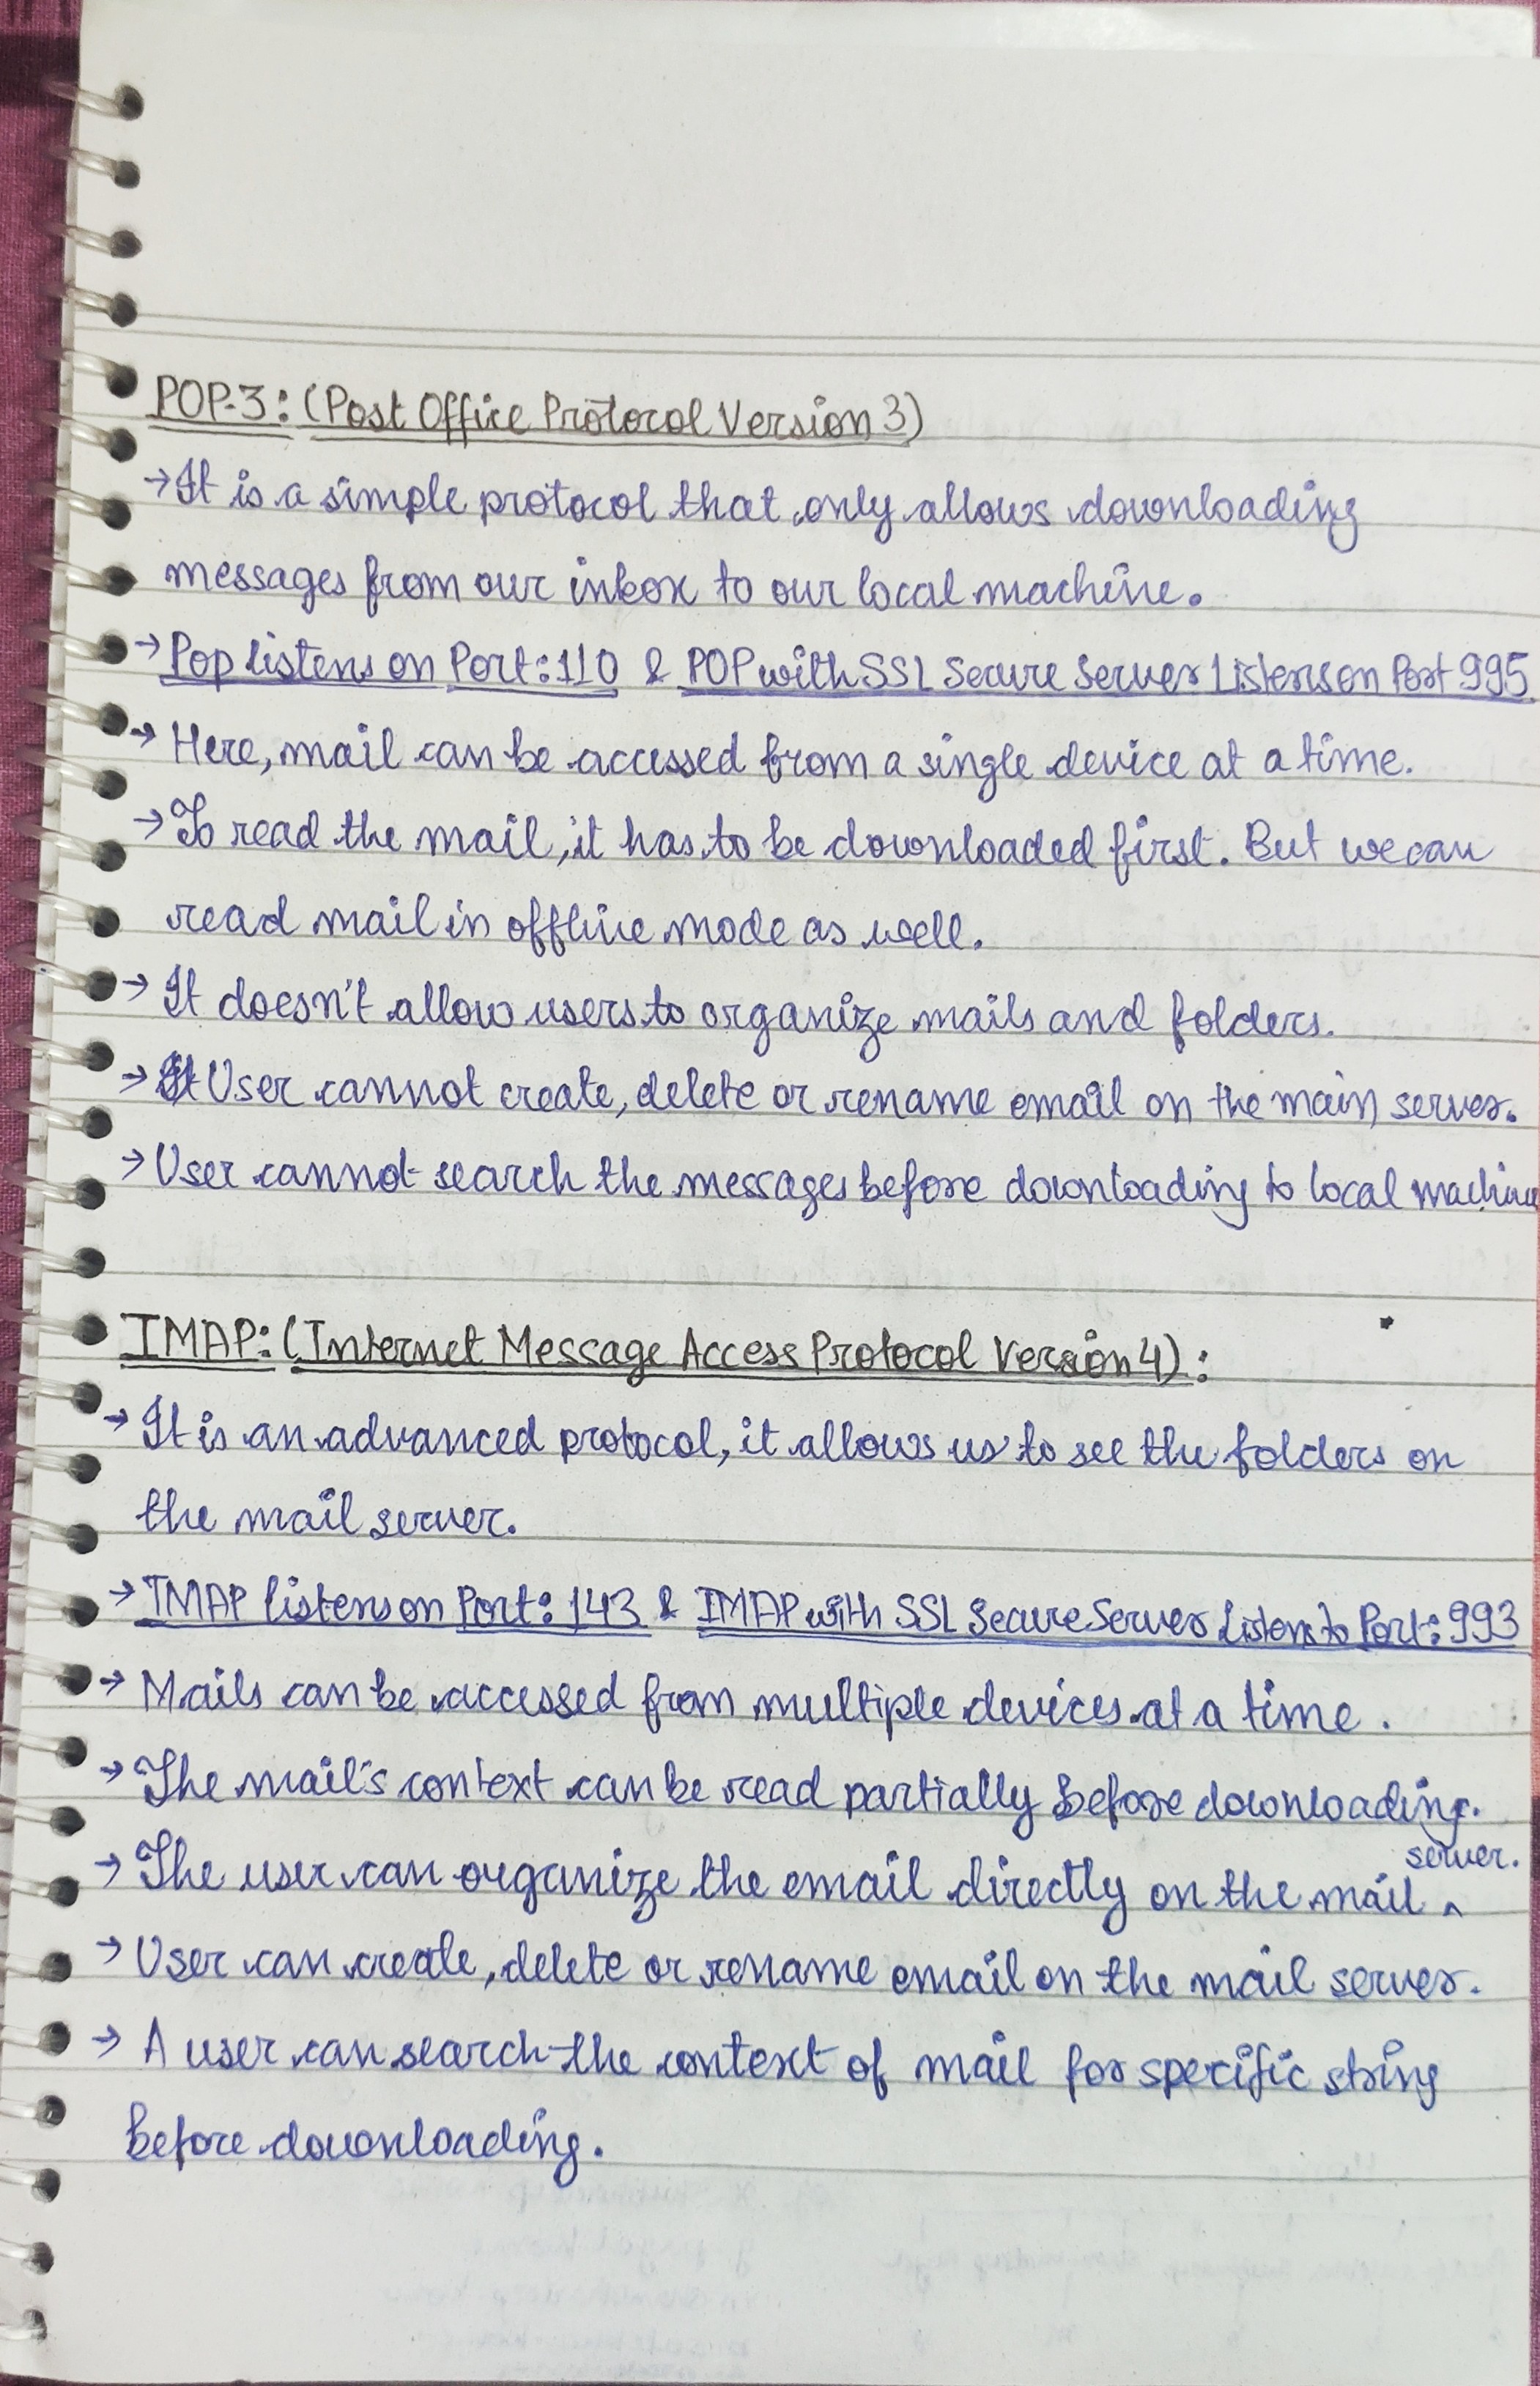 POP-3: (Post Office Protocol Version 3)
→ It is a simple protocol that only allows downloading
messages from our inbox to our local machine.
→ Pop listens on Port: 110 & POP with SSL Secure Server Listens on Port 995
→ Here, mail can be accessed from a single device at a time.
→ To read the mail, it has to be downloaded first. But we can
read mail in offline mode as well.
→ It doesn't allow users to organize mails and folders.
→ User cannot create, delete or rename email on the main server.
→ User cannot search the messages before downloading to local machine
IMAP: (Internet Message Access Protocol Version 4):
→ It is an advanced protocol, it allows us to see the folders on
the mail server.
→ IMAP listens on Port: 143 & IMAP with SSL Secure Server Listens to Port: 993
→ Mails can be accessed from multiple devices at a time.
→ The mail's context can be read partially before downloading.
→ The user can organize the email directly on the mail server.
→ User can create, delete or rename email on the mail server.
→ A user can search the context of mail for specific string
before downloading.